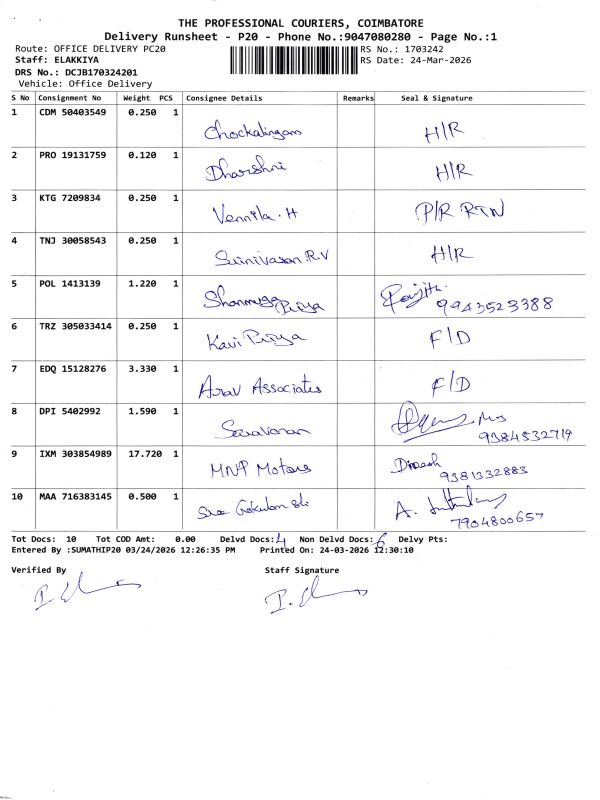 THE PROFESSIONAL COURIERS, COIMBATORE
Delivery Runsheet - P20 - Phone No.:9047080280 - Page No.:1
Route: OFFICE DELIVERY PC20 RS No.: 1703242
Staff: ELAKKIYA RS Date: 24-Mar-2026
DRS No.: DCJB170324201
Vehicle: Office Delivery
S No Consignment No Weight PCS Consignee Details Remarks Seal & Signature
1 CDM 50403549 0.250 1 Chockalingam H/R
2 PRO 19131759 0.120 1 Dharshni H/R
3 KTG 7209834 0.250 1 Vennila. H P/R RTN
4 TNJ 30058543 0.250 1 Srinivasan R.V H/R
5 POL 1413139 1.220 1 Shanmuga Priya 9943523388
6 TRZ 305033414 0.250 1 Kavi Priya F/D
7 EDQ 15128276 3.330 1 Arav Associates F/D
8 DPI 5402992 1.590 1 Saravanan 9384532719
9 IXM 303854989 17.720 1 MNP Motors Dinesh 9381332883
10 MAA 716383145 0.500 1 A. 7904800657
Tot Docs: 10 Tot COD Amt: 0.00 Delvd Docs: 4 Non Delvd Docs: 6 Delvy Pts:
Entered By :SUMATHIP20 03/24/2026 12:26:35 PM Printed On: 24-03-2026 12:30:10
Verified By Staff Signature